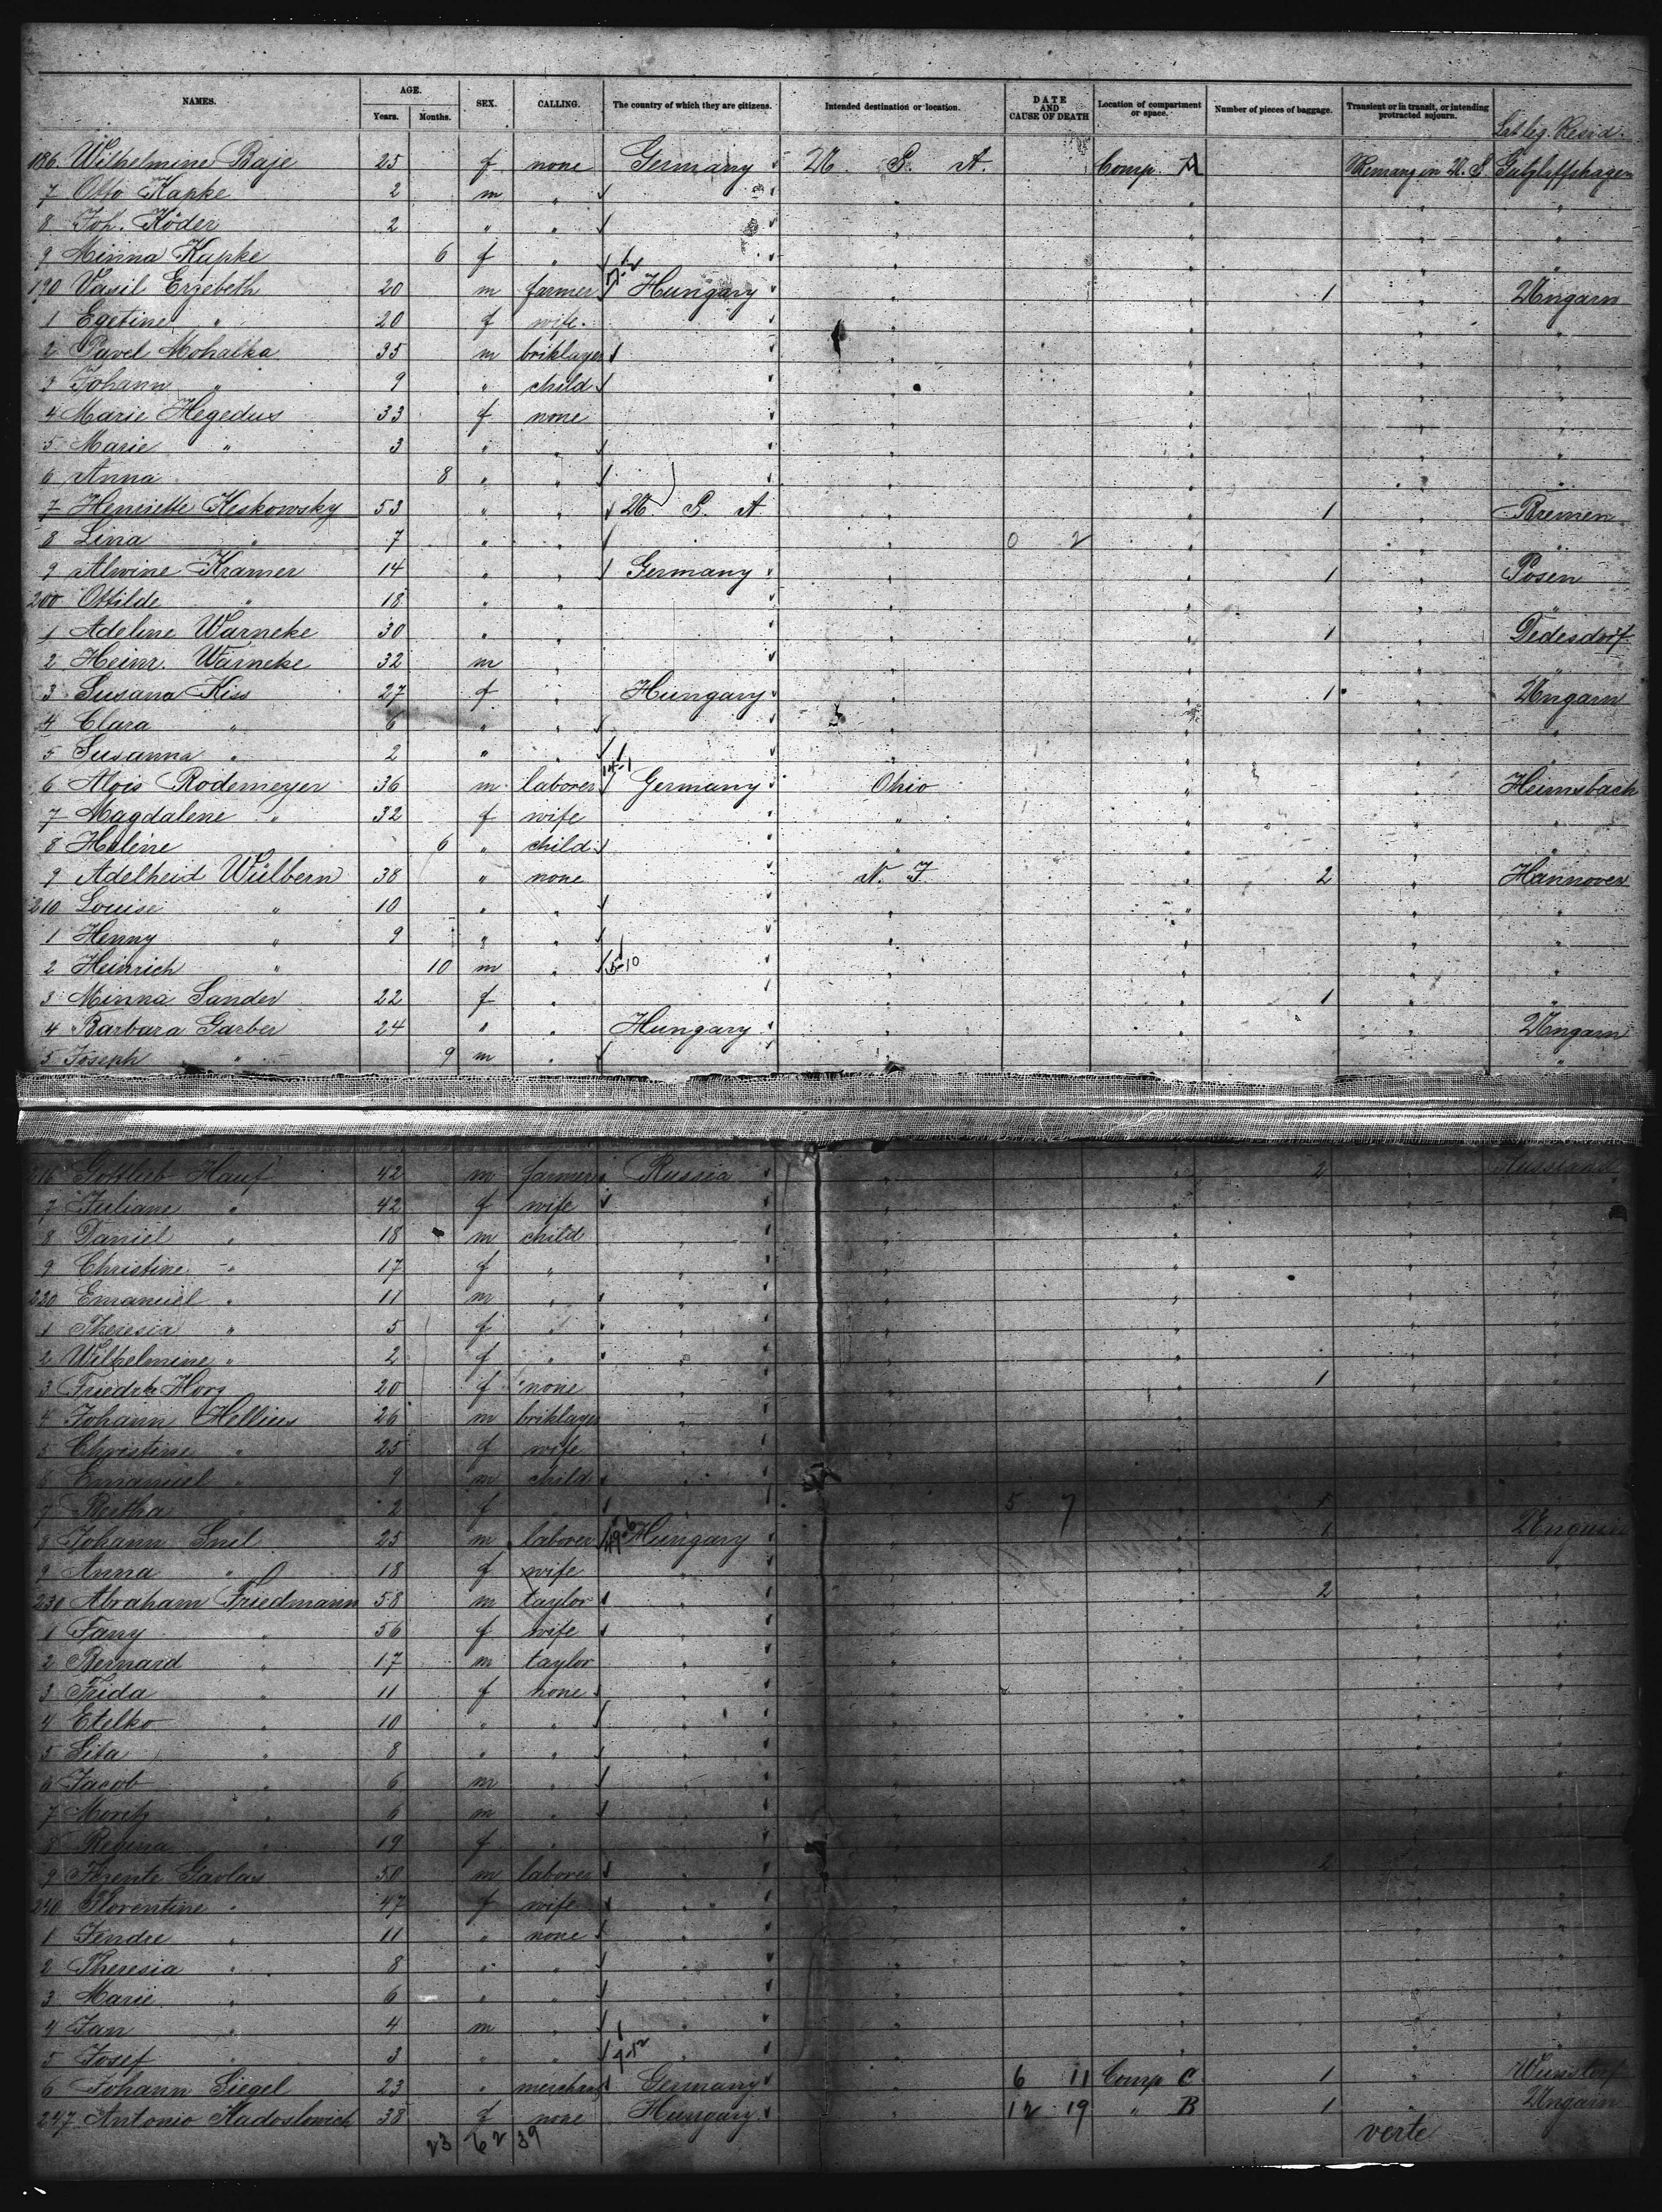 NAMES. AGE. SEX. CALLING. The country of which they are citizens. Intended destination or location. DATE AND CAUSE OF DEATH Location of compartment or space. Number of pieces of baggage. Transient or in transit, or intending protracted sojourn.
Years. Months.
186 Wilhelmine Baje 25 f none Germany U. S. A. Comp. A
7 Otto Kapke 2 m "
8 Joh. Röder 2 " "
9 Minna Kapke 6 f "
190 Vasil Erzebeth 20 m farmer Hungary " 1 " Ungarn
1 Egetine " 20 f wife.
2 Pavel Mohalka 35 m briklayer
3 Johann " 9 " child
4 Marie Hegedus 33 f none
5 Marie " 3 " "
6 Anna 8 " "
7 Henriette Keskowsky 53 " " U. S. A " 1 " Bremen
8 Lina " 7 " " 0 2
9 Alwine Kramer 14 " " Germany " 1 " Posen
200 Ottilde " 18 " "
1 Adeline Warneke 30 " " 1 " Dedesdorf
2 Heinr. Warneke 32 m "
3 Susana Kiss 27 f " Hungary " 1 " Ungarn
4 Clara " 6 " "
5 Susanna " 2 " "
6 Alois Rodemeyer 36 m laborer Germany Ohio " Heimsbach
7 Magdalene " 32 f wife "
8 Helene 6 " child "
9 Adelheid Wülbern 38 " none 2 " Hannover
210 Louise " 10 " "
1 Henny " 9 " "
2 Heinrich " 10 m "
3 Minna Sander 22 f " 1 " "
4 Barbara Garber 24 " " Hungary " Ungarn
5 Joseph " 9 m "
216 Gottlieb Hauf 42 m farmer Russia " 2 " Russland
7 Juliane " 42 f wife
8 Daniel " 18 m child
9 Christine " 17 f "
220 Emanuel " 11 m "
1 Theresia " 5 f "
2 Wilhelmine " 2 f "
3 Horg 20 f none 1
4 Johann Hellius 26 m briklayer
5 Christine " 25 f wife
6 Emanuel " 9 m child
7 Bertha " 2 f 5 7
8 Johann Snil 25 m laborer Hungary " 1 " Ungarn
9 Anna " 18 f wife
230 Abraham Friedmann 58 m taylor 2
1 Fany " 56 f wife
2 Bernard " 17 m taylor
3 Frida " 11 f none
4 Etelko " 10 " "
5 Lita " 8 " "
6 Jacob " 6 m "
7 Moritz " 6 m "
8 Regina " 19 f "
9 Gavlas 50 m laborer 2
240 Florentine " 47 f wife
1 11 " none
2 Theresia " 8 " "
3 Marie " 6 " "
4 Jan " 4 m "
5 Josef " 3 " "
6 Johann Siegel 23 " merchant Germany " 6 11 Comp C 1 " Wunstorf
247 Antonio Radoslowich 38 f none Hungary " 12 19 " B 1 " Ungarn
23 62 39 verte